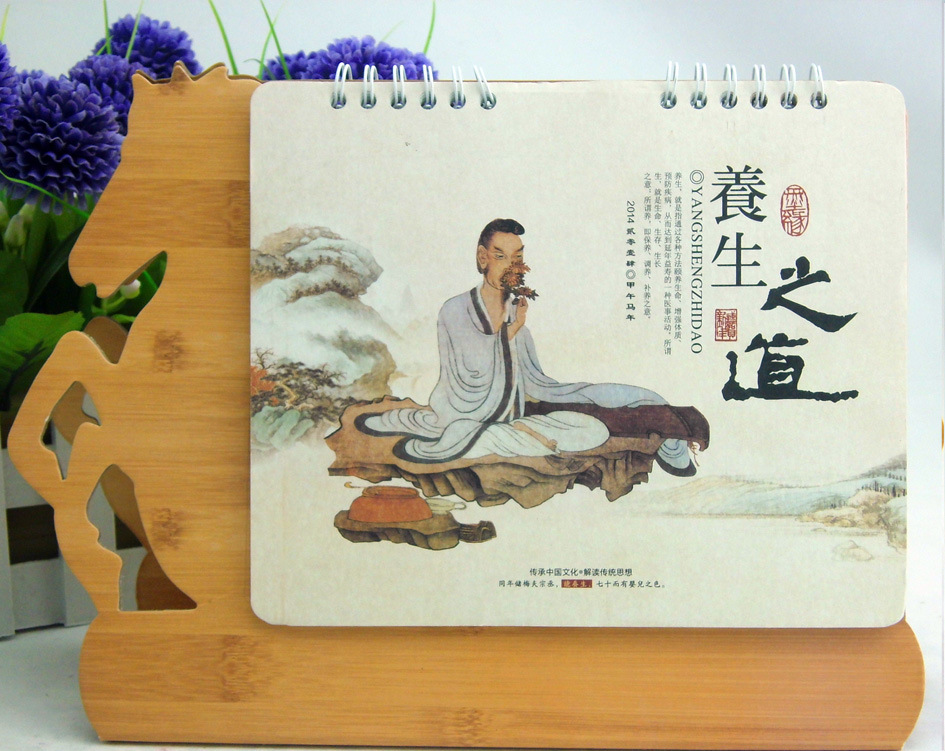 養生
之道
◎YANGSHENGZHIDAO
养生，就是指通过各种方法颐养生命、增强体质、
预防疾病，从而达到延年益寿的一种医事活动。所谓
生，就是生命、生存、生长
之意；所谓养，即保养、调养、补养之意。
2014 贰零壹肆◎甲午马年
传承中国文化●解读传统思想
七十而有嬰兒之色。